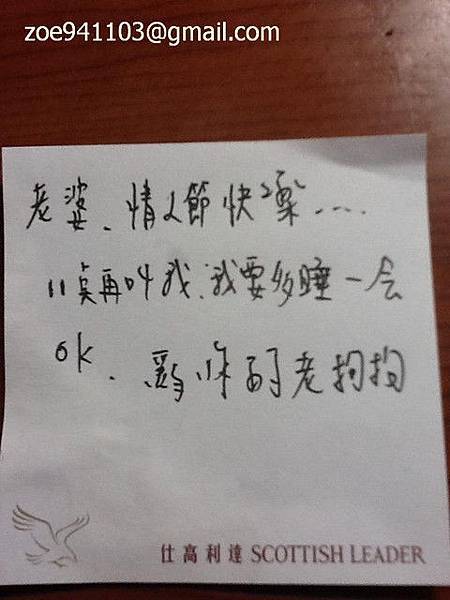 zoe941103@gmail.com
老婆、情人節快樂....
11点再叫我、我要多睡一会
OK、愛你的老狗狗
仕高利達 SCOTTISH LEADER